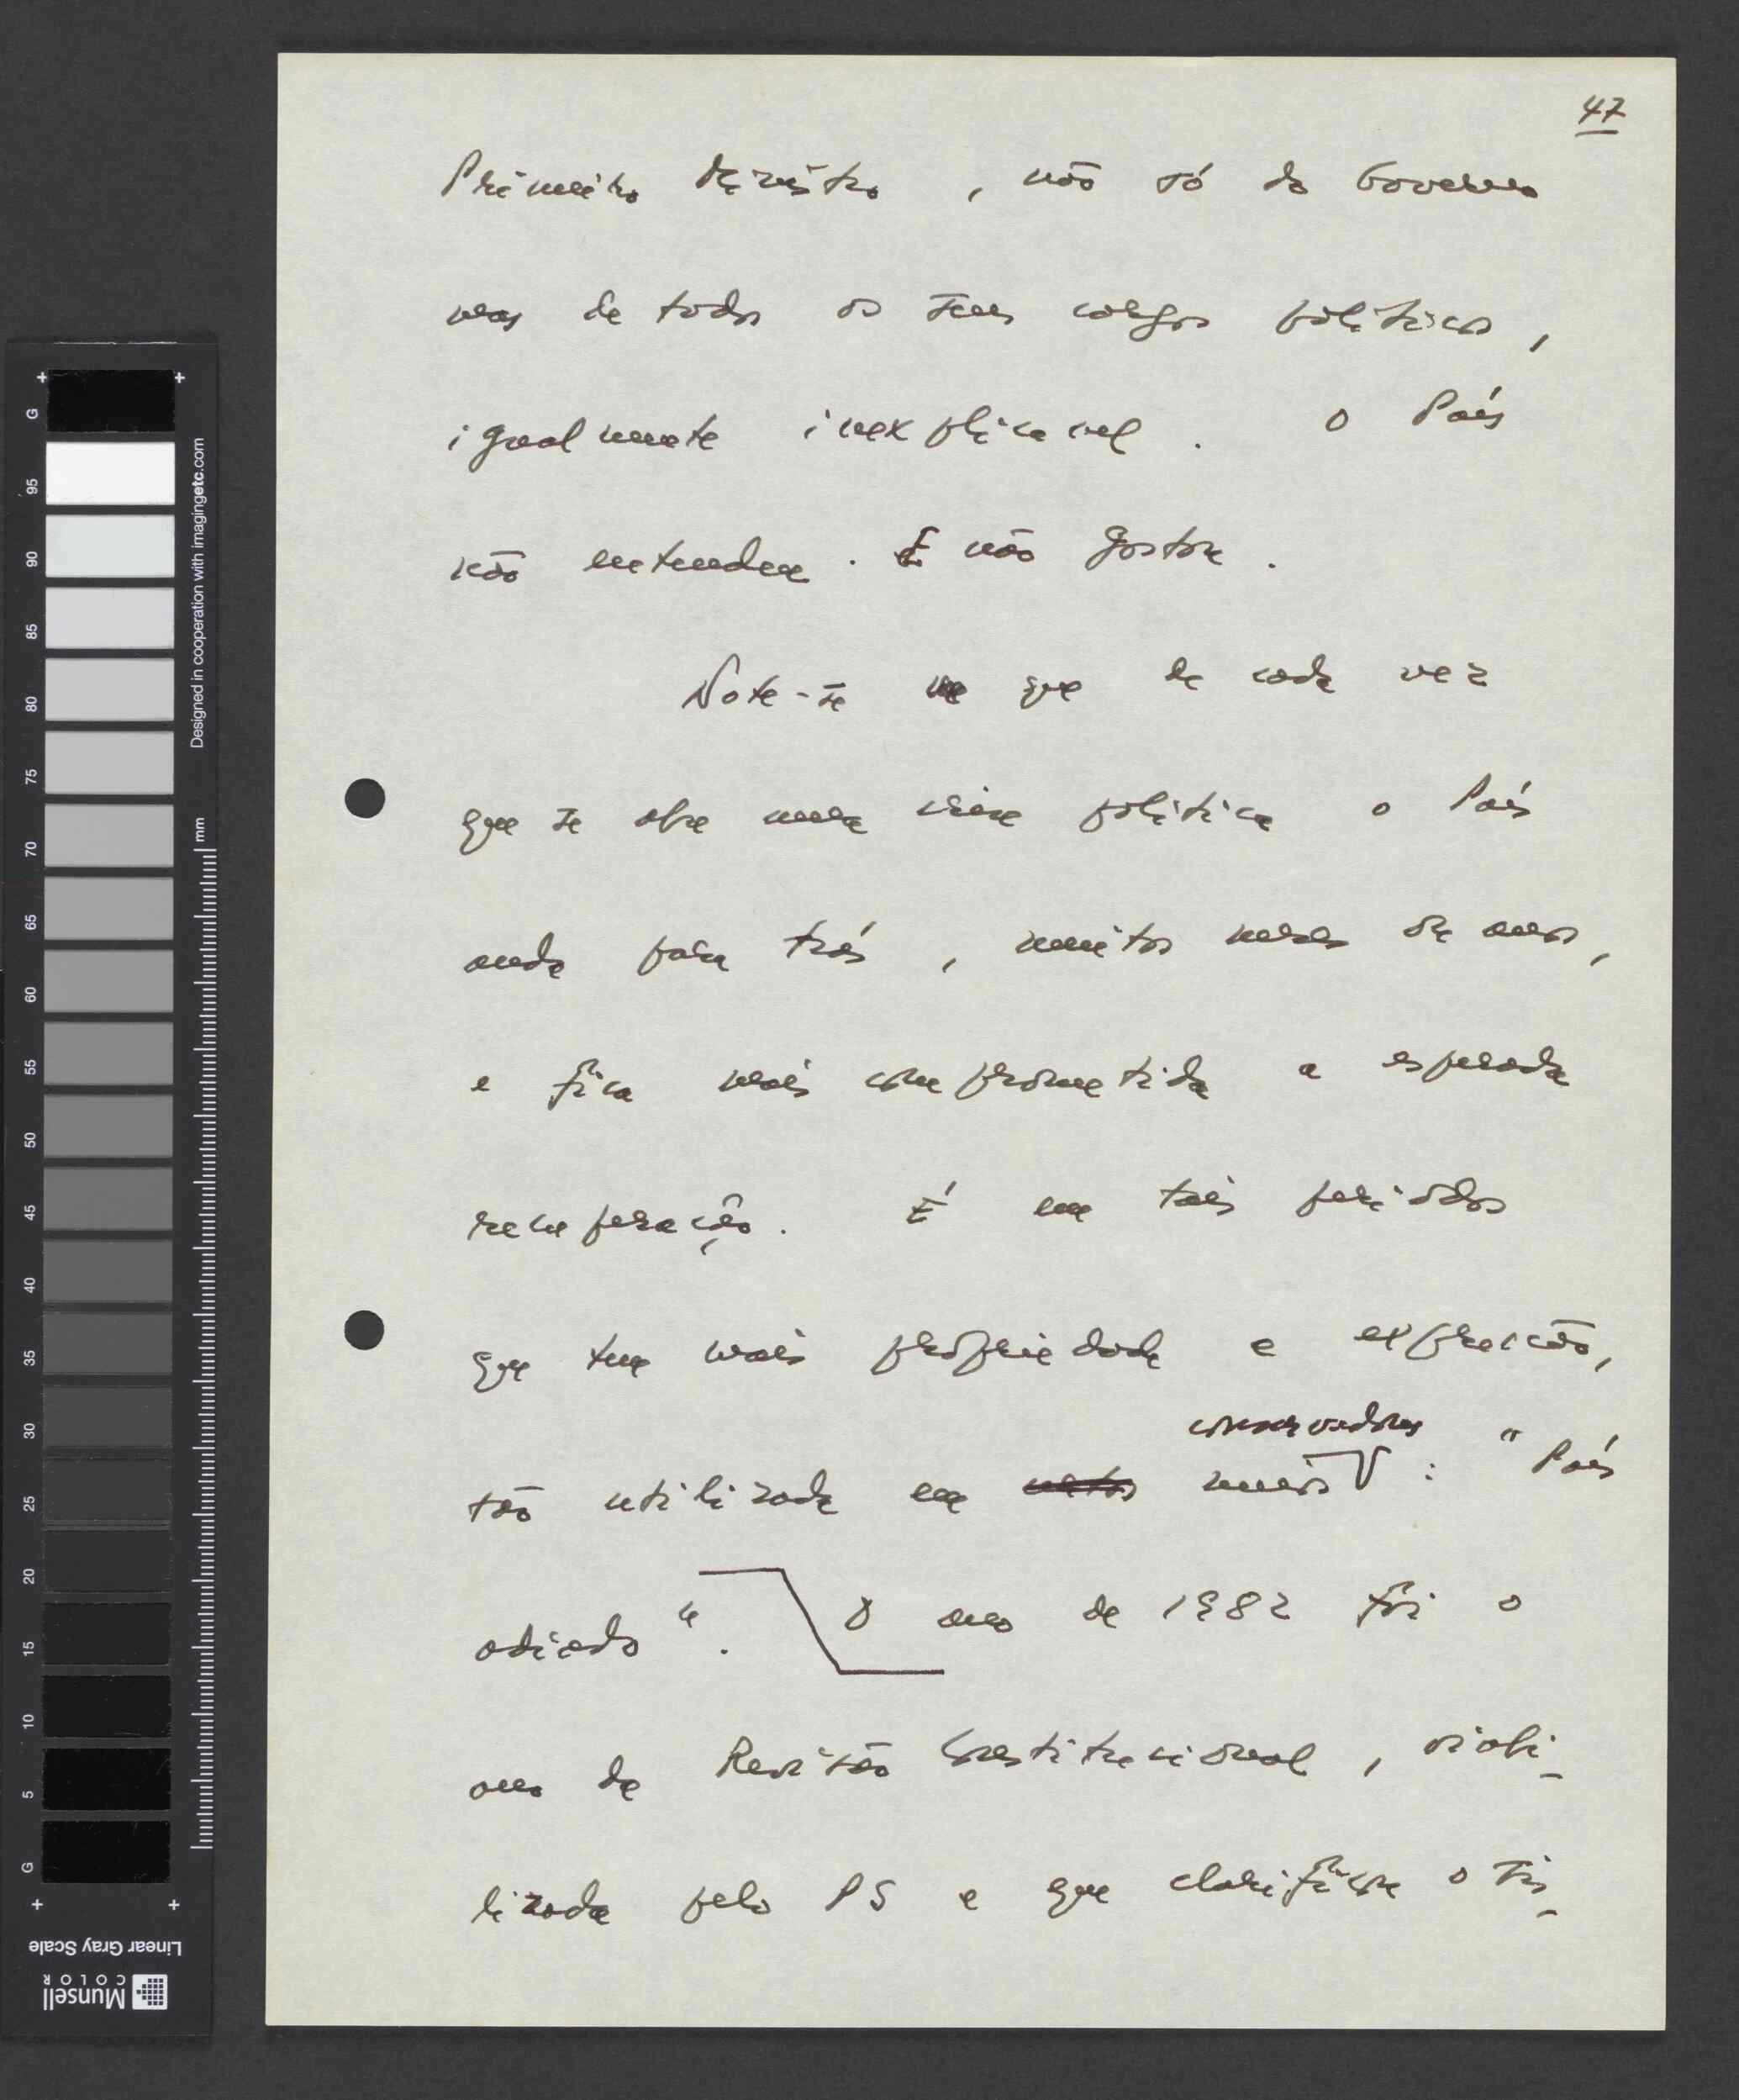 47
Primeiro Ministro, não só do Governo
mas de todos os seus cargos políticos,
igualmente inexplicavel. O País
não entendeu. E não gostou.
Note-se que de cada vez
que se abre uma crise politica o País
anda para trás, muitos meses ou anos,
e fica mais comprometida a esperada
recuperação. É em tais periodos
que tem mais propriedade a expressão,
conservadores
tão utilizada em meios : "País
adiado". O ano de 1982 foi o
ano da Revisão Constitucional, viabi-
lizada pelo PS e que clarificou o sis-
G
95
90
85
80
75
70
65
60
55
50
45
40
35
30
25
20
15
10
5
G
mm
Designed in cooperation with imagingetc.com
Linear Gray Scale
Munsell
COLOR